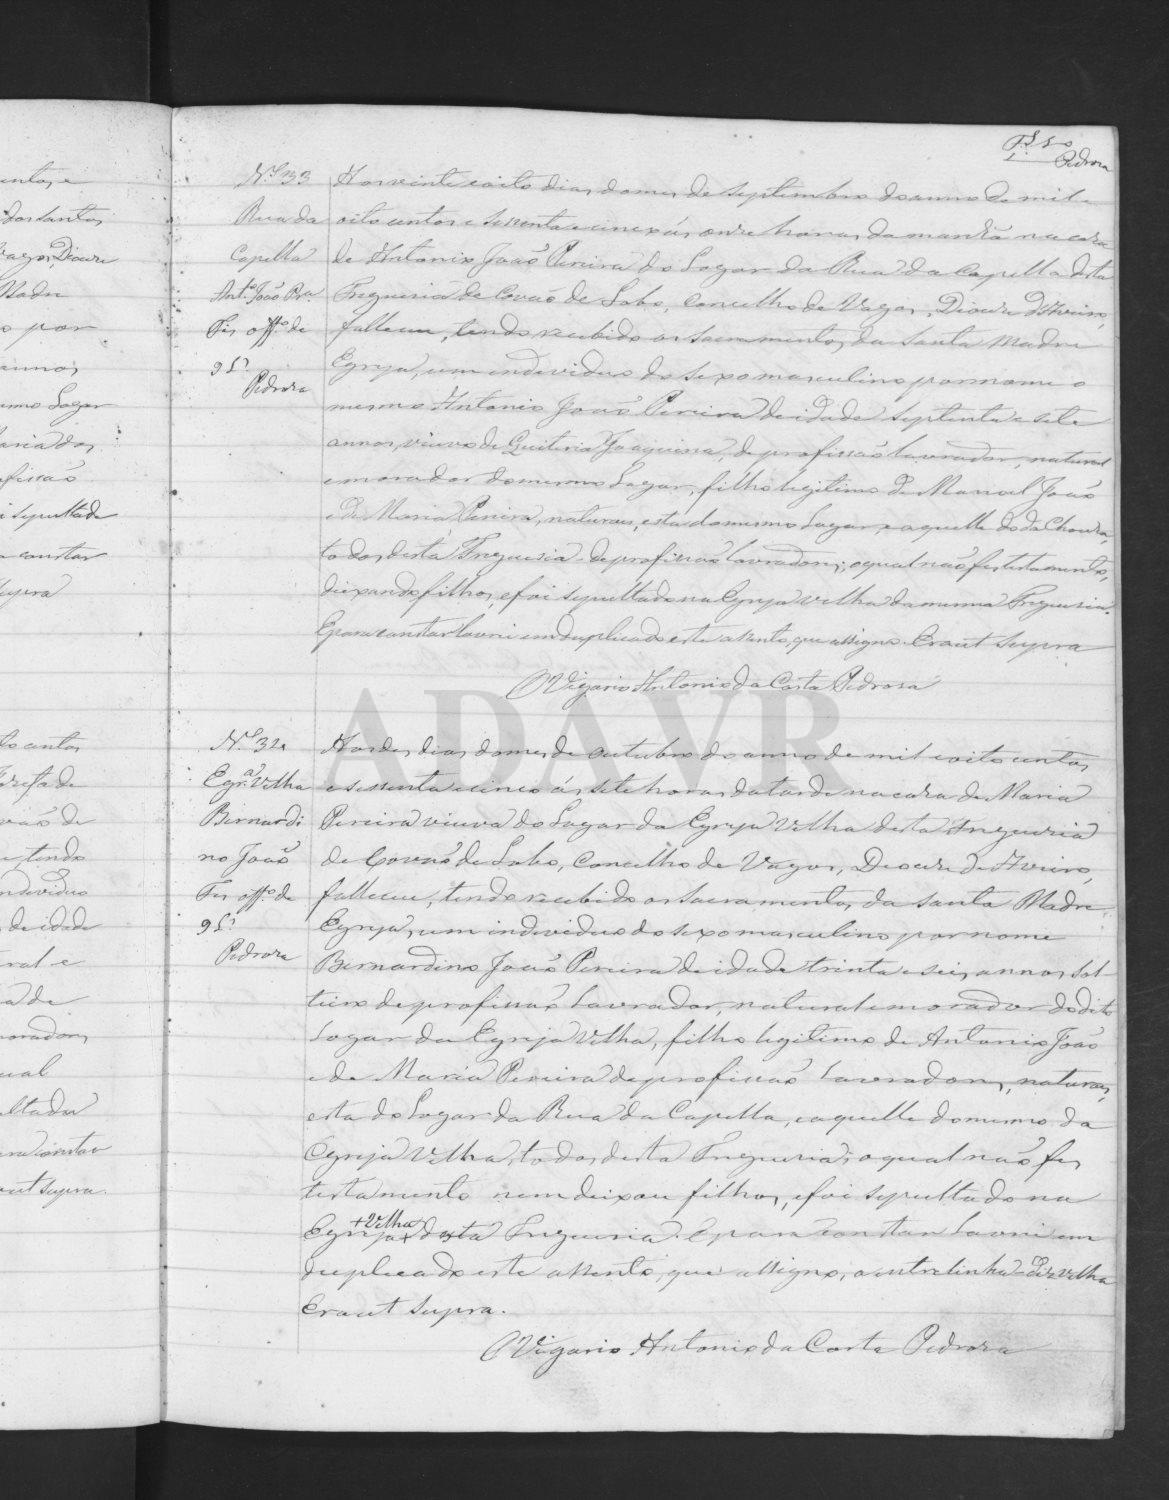 Pedrosa
N.º 33
Rua da
Capella
Ant.º João Pr.ª
Fis off.º de
9 L.s
Pedrosa
Aos vinte e oito dias do mes de Septembro do anno de mil e
oito centos e sessenta e cinco ás onze horas da manhã na casa
de Antonio João Pereira do Logar da Rua da Capella desta
Freguesia de Covaõ de Lobo, Concelho de Vagos, Diocese d'Aveiro,
falleceu, tendo recebido os Sacramentos da Santa Madre
Egreja, um individuo do sexo masculino por nome o
mesmo Antonio João Pereira de idade septenta e sete
annos, viuvo de Quiteria Joaquina, de profissaõ lavrador, natural
e morador do mesmo Logar, filho legitimo de Manoel João
e de Maria Pereira, naturaes, esta do mesmo Logar, e aquelle do da Choura
todos desta Freguesia de profissaõ lavradores; o qual naõ fes testamento,
deixando filhos, e foi sepultado na Egreja velha da mesma Freguesia.
E para constar lavrei em duplicado este assento, que assigno. Era ut supra
O Vigario Antonio da Costa Pedrosa
N.º 34
Egr.ª Velha
Bernardi
no João
Fis off.º de
9 L.s
Pedrosa
Aos des dias do mes de Outubro do anno de mil e oito centos
e sessenta e cinco ás sete horas da tarde na casa de Maria
Pereira viuva do Logar da Egreja Velha desta Freguesia
de Covaõ de Lobo, Concelho de Vagos, Diocese de Aveiro,
falleceu, tendo recebido os Sacramentos da Santa Madre
Egreja, um individuo do sexo masculino por nome
Bernardino João Pereira de idade trinta e seis annos sol-
teiro de profissaõ lavrador, natural e morador do dito
Logar da Egreja Velha, filho legitimo de Antonio João
e de Maria Pereira de profissaõ lavradores, naturaes,
esta do Logar da Rua da Capella, e aquelle do mesmo da
Egreja Velha, todos desta Freguesia; o qual naõ fes
testamento nem deixou filhos, e foi sepultado na
+ Velha
Egreja desta Freguesia. E para constar lavrei em
duplicado este assento, que assigno, a entrelinha diz velha
Era ut supra.
O Vigario Antonio da Costa Pedrosa
ADAVR